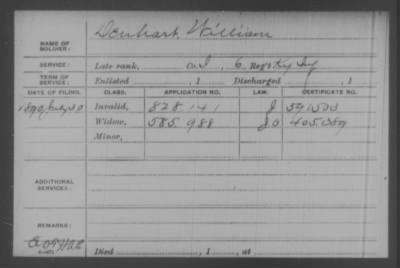 Denhart, William
NAME OF SOLDIER:
SERVICE: Late rank, Co. I, 6 Reg't Ky Inf
TERM OF SERVICE: Enlisted , 1 Discharged , 1
DATE OF FILING. CLASS. APPLICATION NO. LAW. CERTIFICATE NO.
1890 July 30 Invalid, 828.141 J
Widow, 585.988
Minor,
ADDITIONAL SERVICES:
REMARKS:
Died , 1 , at